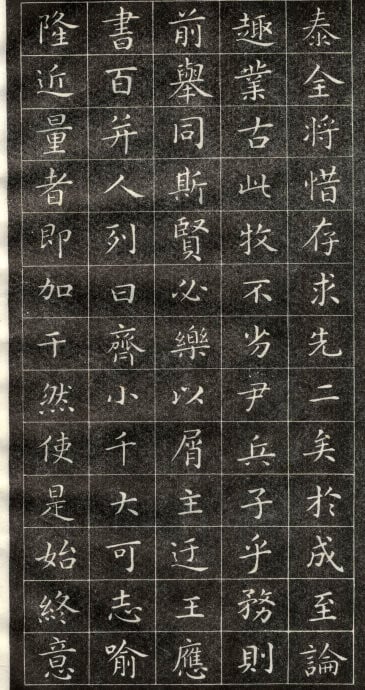 泰全將惜存求先二矣於成至論
趣業古此牧不劣尹兵子乎務則
前舉同斯賢必樂以屑主迂王應
書百并人列曰齊小千大可志喻
隆近量者即加干然使是始終意